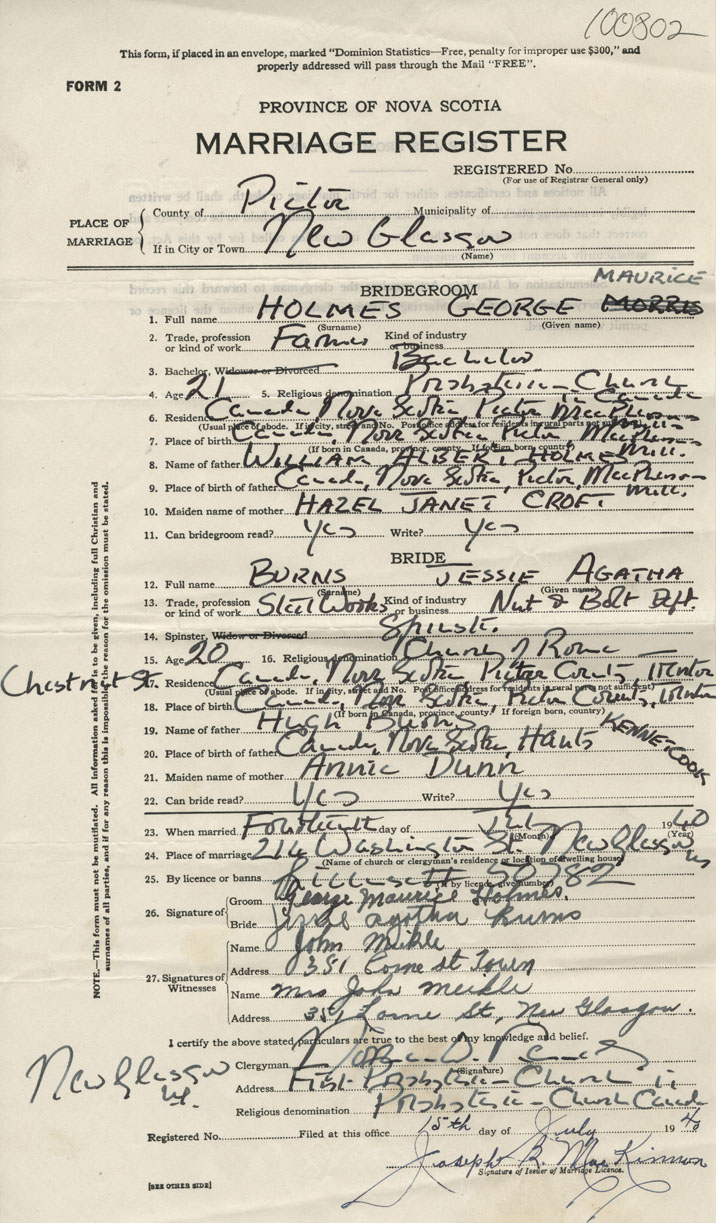 100802
This form, if placed in an envelope, marked "Dominion Statistics—Free, penalty for improper use $300," and
properly addressed will pass through the Mail "FREE".
FORM 2
PROVINCE OF NOVA SCOTIA
MARRIAGE REGISTER
REGISTERED No.
(For use of Registrar General only)
PLACE OF MARRIAGE
County of Pictou Municipality of
If in City or Town New Glasgow
(Name)
BRIDEGROOM
MAURICE
1. Full name HOLMES GEORGE MORRIS
(Surname) (Given name)
2. Trade, profession or kind of work Farmer Kind of industry or business
3. Bachelor, Widower or Divorced Bachelor
4. Age 21 5. Religious denomination Presbyterian Church in Canada
6. Residence Canada, Nova Scotia, Pictou, MacPhersons Mill
(Usual place of abode. If in city, street and No. Post office address for residents in rural parts not sufficient)
7. Place of birth Canada, Nova Scotia, Pictou, MacPhersons Mill.
(If born in Canada, province, county. If foreign born, country)
8. Name of father WILLIAM ALBERT HOLMES
9. Place of birth of father Canada, Nova Scotia, Pictou, MacPherson Mill.
10. Maiden name of mother HAZEL JANET CROFT
11. Can bridegroom read? Yes Write? Yes
BRIDE
12. Full name BURNS JESSIE AGATHA
(Surname) (Given name)
13. Trade, profession or kind of work Steel Works Kind of industry or business Nut & Bolt Dept.
14. Spinster, Widow or Divorced Spinster.
15. Age 20 16. Religious denomination Church of Rome
Chestnut St.
17. Residence Canada, Nova Scotia, Pictou County, Trenton
(Usual place of abode. If in city, street and No. Post office address for residents in rural parts not sufficient)
18. Place of birth Canada, Nova Scotia, Pictou County, Trenton
(If born in Canada, province, county. If foreign born, country)
19. Name of father Hugh Burns
20. Place of birth of father Canada, Nova Scotia, Hants KENNETCOOK
21. Maiden name of mother Annie Dunn
22. Can bride read? Yes Write? Yes
23. When married Fourteenth day of July 1940
(Month) (Year)
24. Place of marriage 214 Washington St. New Glasgow
(Name of church or clergyman's residence or location of dwelling house)
25. By licence or banns 50782
(If by licence give number)
26. Signature of
Groom George Maurice Holmes.
Bride Jessie Agatha Burns
27. Signatures of Witnesses
Name John Meikle
Address 351 Lorne St Town
Name Mrs John Meikle
Address 351 Lorne St, New Glasgow.
I certify the above stated particulars are true to the best of my knowledge and belief.
Clergyman
(Signature)
New Glasgow
Address First Presbyterian Church
Religious denomination Presbyterian Church Canada
Registered No. Filed at this office 15th day of July 1940
Joseph B. MacKinnon
Signature of Issuer of Marriage Licence.
[SEE OTHER SIDE]
NOTE.—This form must not be mutilated. All information asked for is to be given, including full Christian and
surnames of all parties, and if for any reason this is impossible the reason for the omission must be stated.